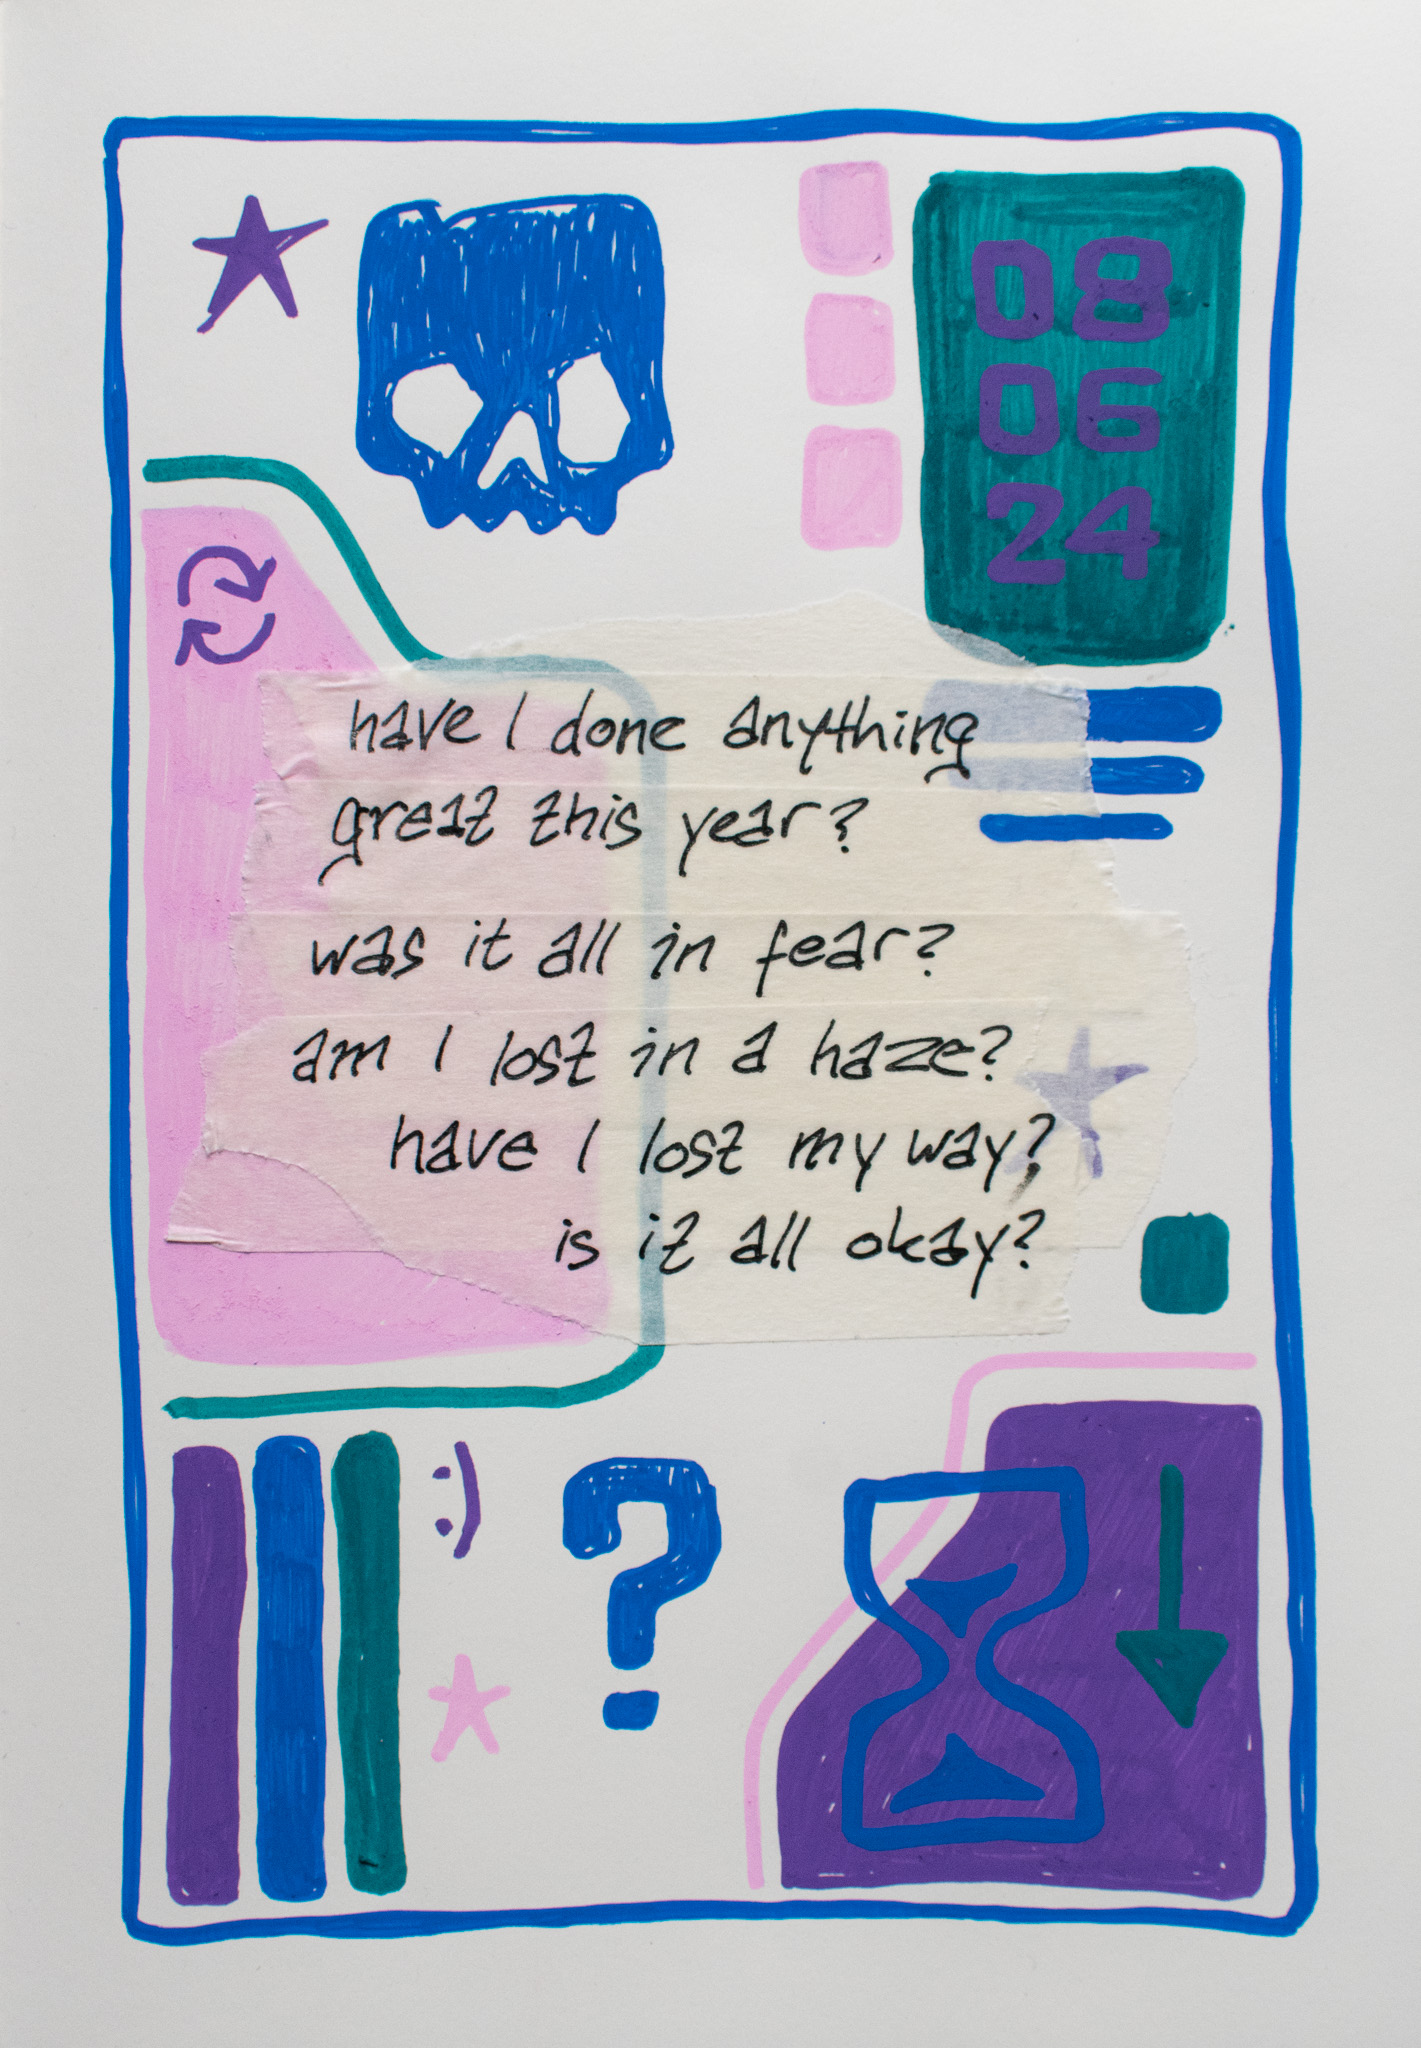 08
06
24
have I done anything
great this year?
was it all in fear?
am I lost in a haze?
have I lost my way?
is it all okay?
:)
?